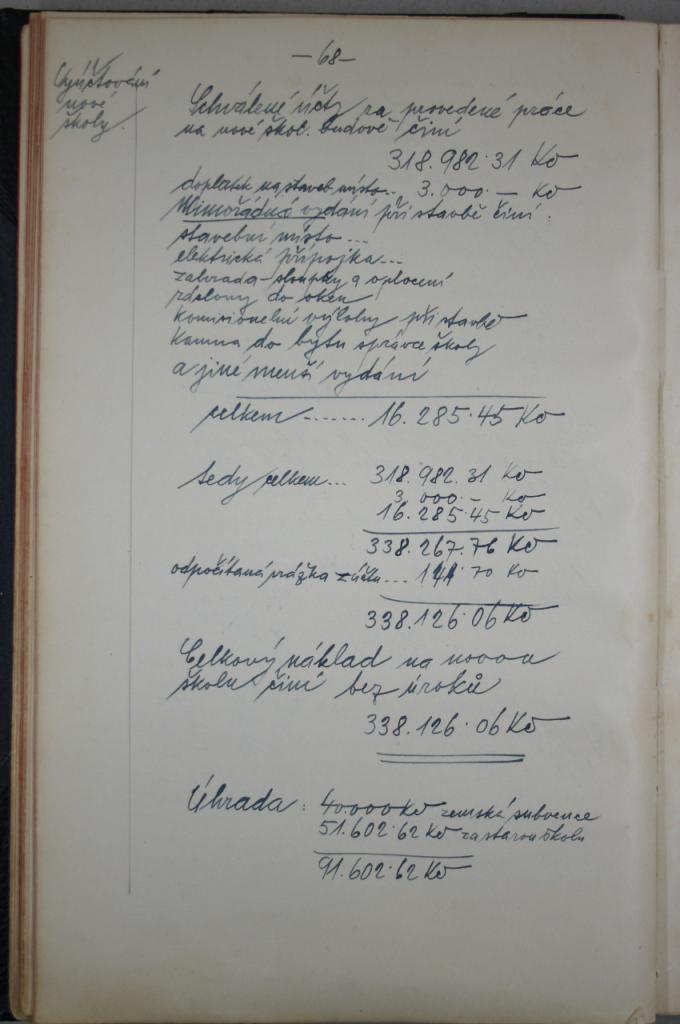 — 68 —
Vyúčtování
nové
školy.
Schválené účty za provedené práce
na nové škol. budově činí
318.982.31 Kč
doplatek na staveb. místo.. 3.000.— Kč
Mimořádná vydání při stavbě činí:
stavební místo...
elektrická přípojka...
zahrada - sloupky a oplocení
do oken
komisionelní výlohy při stavbě
Kamna do bytu správce školy
a jiné menší vydání
celkem ....... 16.285.45 Kč
tedy celkem... 318.982.31 Kč
3.000.— Kč
16.285.45 Kč
338.267.76 Kč
odpočítaná srážka z účtu... 141.70 Kč
338.126.06 Kč
Celkový náklad na novou
školu činí bez úroků
338.126.06 Kč
Úhrada: 40.000 Kč zemská subvence
51.602.62 Kč za starou školu
91.602.62 Kč